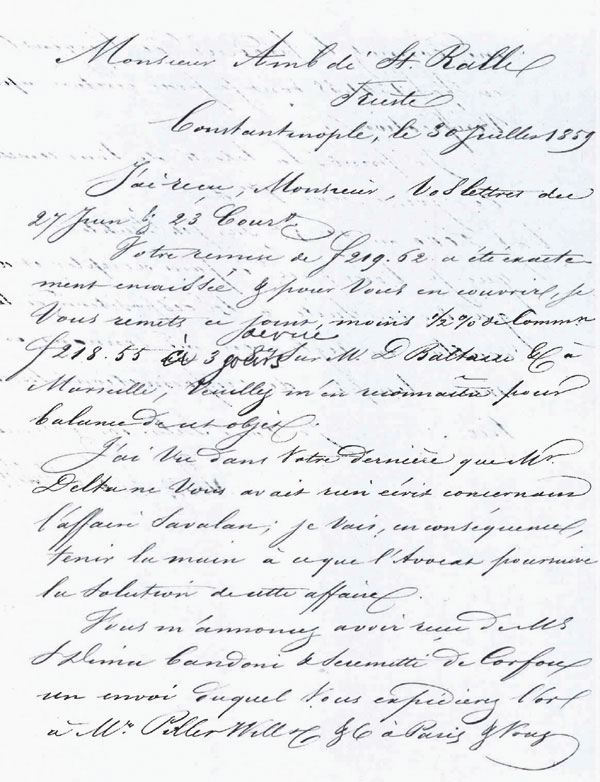 Monsieur Amb de St Ralli
Trieste
Constantinople, le 30 Juillet 1859
J'ai reçu, Monsieur, Vos lettres des
27 Juin & 23 Cour.t
Votre remise de f 219.62 a été exacte
ment encaissée & pour Vous en couvrir, je
Vous remets ci joint, moins 1/2 % de Comm.n
f 218.55 à 3 jours de vue sur M. D Baltazzi & C à
Marseille, Veuillez m'en reconnaître pour
balance de cet objet.
J'ai Vu dans Votre dernière que Mr
Delta ne Vous avait rien écrit concernant
l'affaire Savalan; je Vais, en conséquence,
tenir la main à ce que l'Avocat poursuive
la Solution de cette affaire.
Vous m'annoncez avoir reçu de Mrs
& de Corfou
un envoi duquel Vous expédierez l'or
à Mrs Pillet Will & C à Paris & Vous